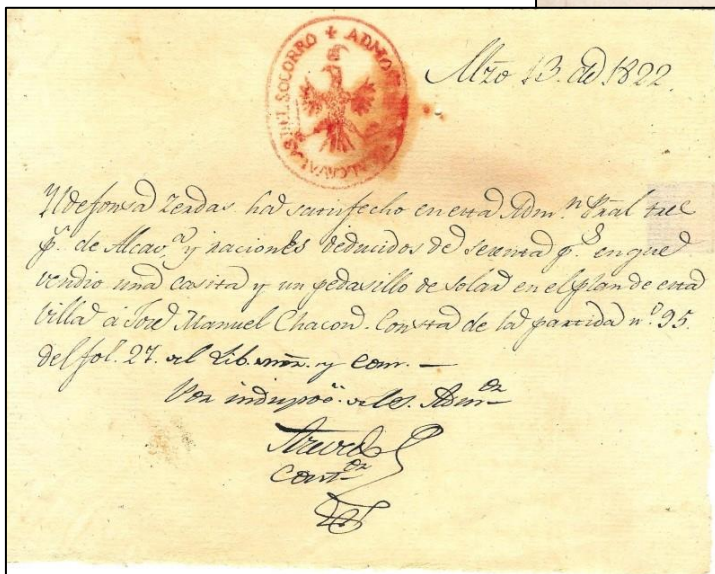 ADMON DE ALCAVALAS DEL SOCORRO
Mzo 13. de 1822.
Yldefonsa Zerdas ha satisfecho en esta Adm.n Pral tres
p.s de Alcav.a y raciones deducidos de sesenta p.s en que
vendio una casita y un pedasillo de solar en el plan de esta
Villa a José Manuel Chacon. Consta de la partida n.o 95.
del fol. 27. del Lib. man. y com. —
Por indispo.on del S. Adm.or
Cont.or